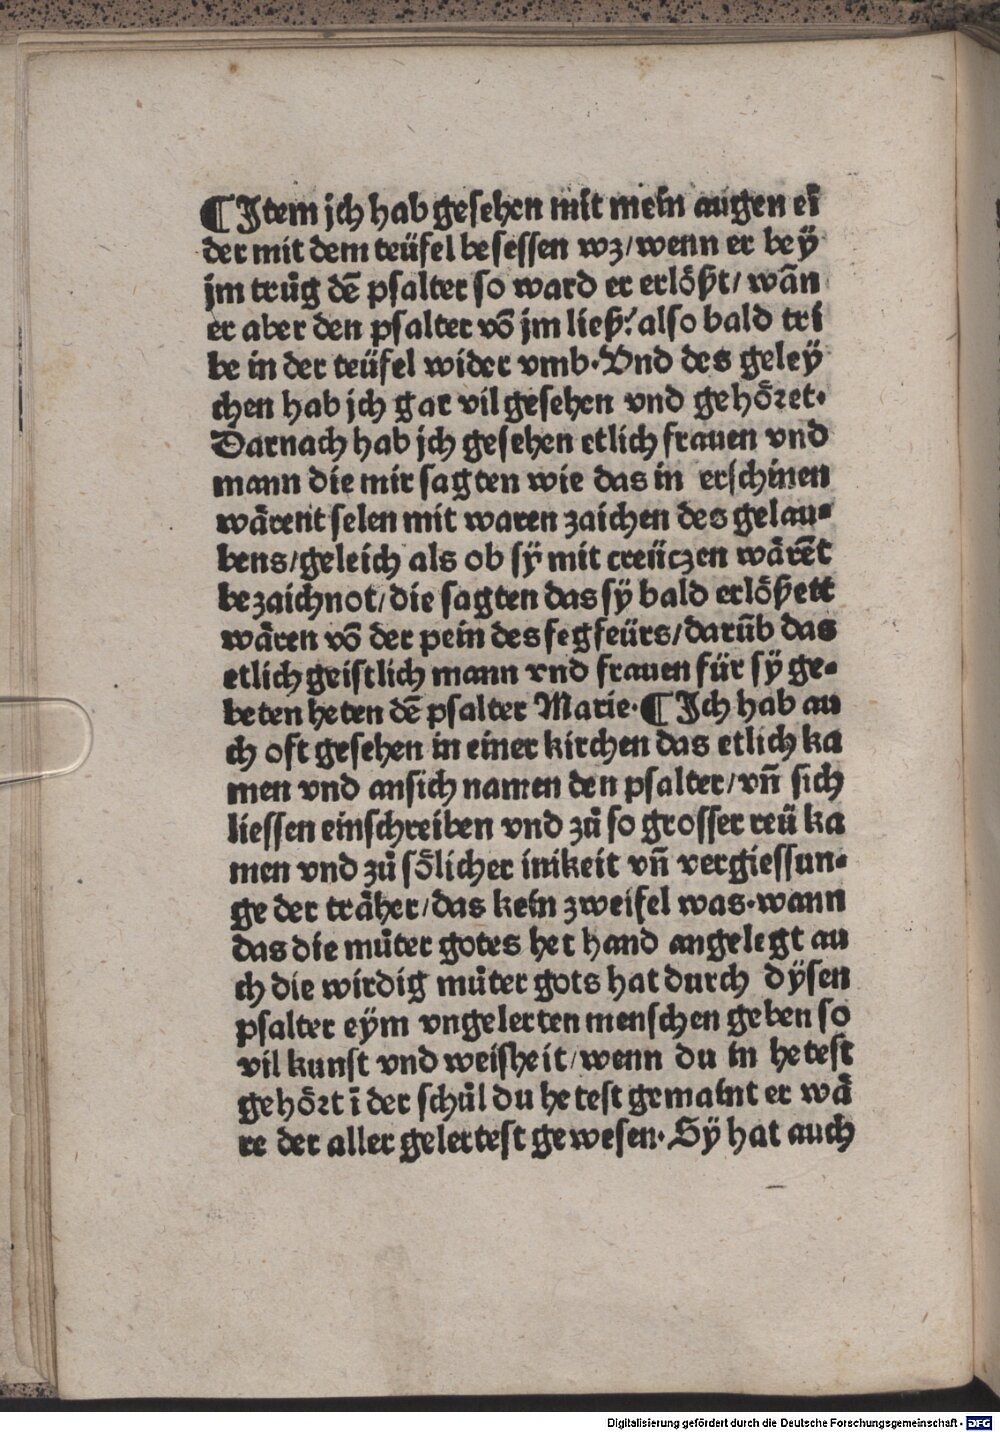 ¶ Jtem jch hab gesehen mit mein augen eī
der mit dem teüfel besessen wz/wenn er bey̋
jm trůg dē psalter so ward er erlößt/wān
er aber den psalter vō jm ließ/also bald tri
be in der teüfel wider vmb. Vnd des geley̋
chen hab jch gar vil gesehen vnd gehöꝛet.
Darnach hab jch gesehen etlich frauen vnd
mann die mir sagten wie das in erschinen
wärent selen mit waren zaichen des gelau-
bens/geleich als ob sÿ mit creüczen wärēt
bezaichnot/die sagten das sÿ bald erlößett
wären vō der pein des fegfeürs/darūb das
etlich geistlich mann vnd frauen für sÿ ge-
beten heten dē psalter Marie. ¶ Jch hab au
ch oft gesehen in einer kirchen das etlich ka
men vnd ansich namen den psalter/vn̄ sich
liessen einschreiben vnd zů so grosser reü ka
men vnd zů sölicher inikeit vn̄ vergiessun-
ge der träher/das kein zweifel was. wann
das die můter gotes her hand angelegt au
ch die wirdig můter gots hat durch dÿsen
psalter eÿm vngelerten menschen geben so
vil kunst vnd weisheit/wenn du in hetest
gehöꝛt ī der schůl du hetest gemaint er wä
re der aller gelertest gewesen. Sÿ hat auch
Digitalisierung gefördert durch die Deutsche Forschungsgemeinschaft - DFG